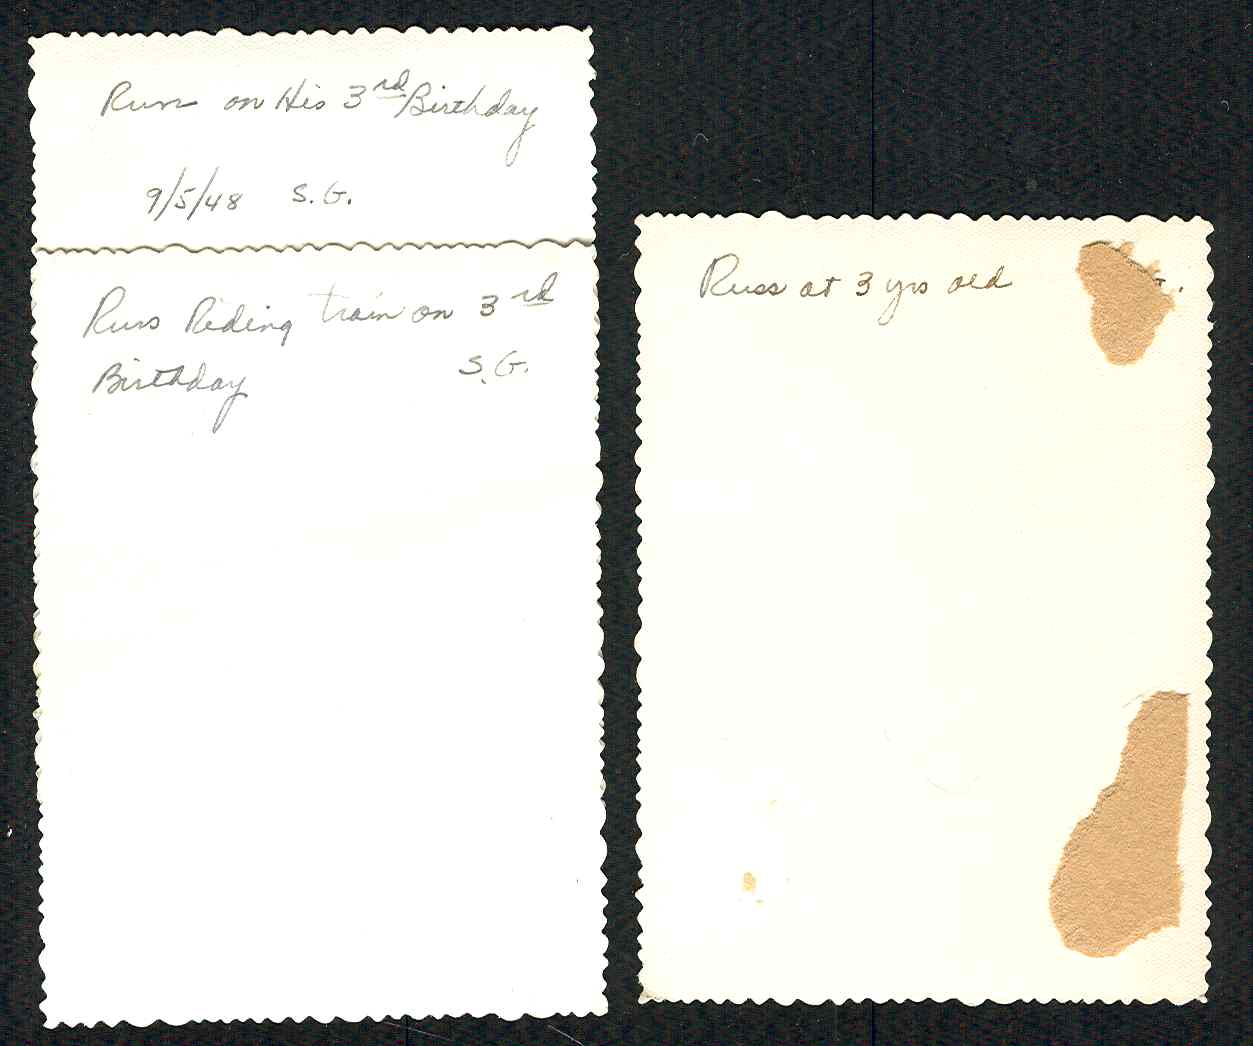 Russ on His 3rd Birthday
9/5/48 S.G.
Russ Riding train on 3rd
Birthday S.G.
Russ at 3 yrs old
G.